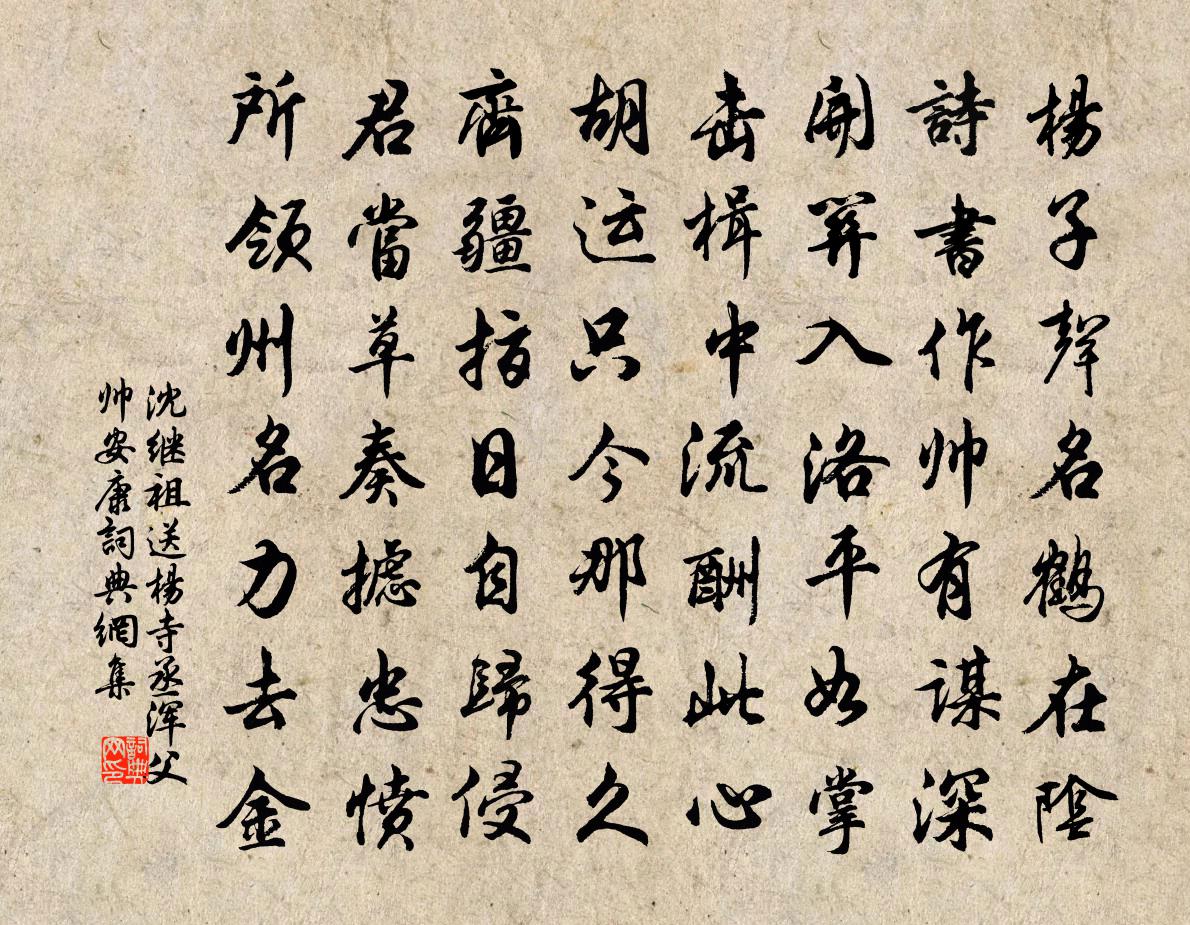 楊子聲名鶴在陰
詩書作帅有謀深
開關入洛平如掌
击楫中流酬此心
胡运只今那得久
齊疆指日自歸侵
君當草奏攄忠憤
所領州名力去金
沈继祖送楊寺丞浑父
帅安康詞典網集